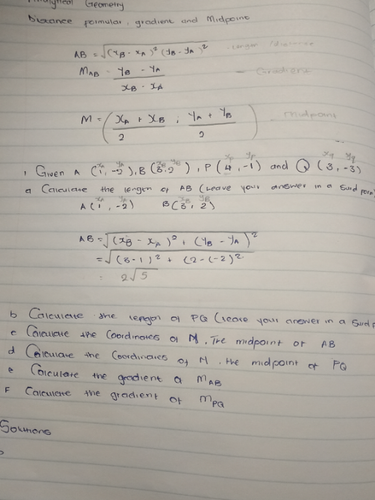 Analytical Geometry
Distance formular, gradient and Midpoint
AB = √(xB - xA)² (yB - yA)²
MAB = yB - yA / xB - xA - Gradient
M = (xA + xB / 2 , yA + yB / 2) Midpoint
xA yA xB yB xP yP xQ yQ
1. Given A (1, -2), B (3, 2), P (4, -1) and Q (3, -3)
a Calculate the length of AB (Leave your answer in a surd form)
xA yA xB yB
A (1, -2) B (3, 2)
AB = √(xB - xA)² + (yB - yA)²
= √(3-1)² + (2-(-2)²
= 2√5
b Calculate the length of PQ (leave your answer in a surd
c Calculate the Coordinates of M, The midpoint of AB
d Calculate the Coordinates of N, the midpoint of PQ
e Calculate the gradient of MAB
F Calculate the gradient of MPQ
Solutions